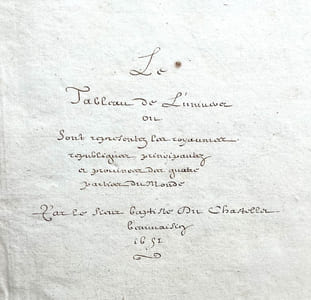 Le
Tableau de Luniuers
ou
Sont representez les royaumes
republiques principautez
et prouinces des quatre
parties du Monde
Par le sieur baptiste Du Chastelle
beauuaisin
1651